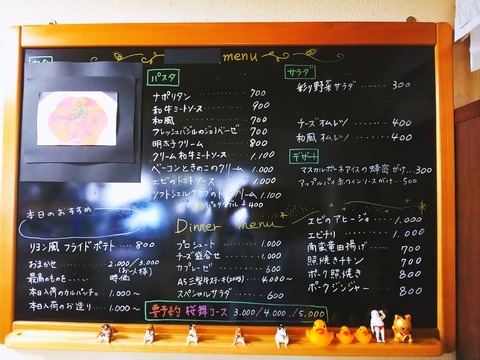 menu
パスタ
ナポリタン 700
和牛ミートソース 900
和風 700
フレッシュバジルのジェノベーゼ 700
明太子クリーム 800
クリーム和牛ミートソース 1,100
ベーコンときのこのクリーム 1,000
エビのトマトソース 1,000
ソフトシェルクラブのトマトクリーム 1,100
サラダ
彩り野菜サラダ 300
チーズオムレツ 400
和風オムレツ 400
デザート
マスカルポーネアイスの蜂蜜がけ… 300
アップルパイ赤ワインソースがけ… 500
本日のおすすめ
リヨン風フライドポテト 800
おまかせ 2,000/3,000
(お一人様)
最高のものを 時価
本日入荷のカルパッチョ 1,000~
本日入荷のお造り 1,000~
Dinner menu
プロシュート 1,000
チーズ盛合せ 1,000
カプレーゼ 600
A5三梨牛ステーキ(200g) 4,000~
スペシャルサラダ 600
エビのアヒージョ 1,000
エビチリ 1,000
南蛮竜田揚げ 700
照焼きチキン 700
ポーク照焼き 800
ポークジンジャー 800
要予約 桜舞コース 3,000/4,000/5,000